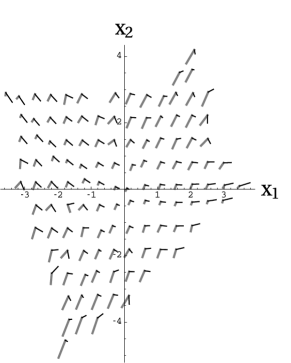 x2
4
2
-3 -2 -1 1 2 3 x1
-2
-4